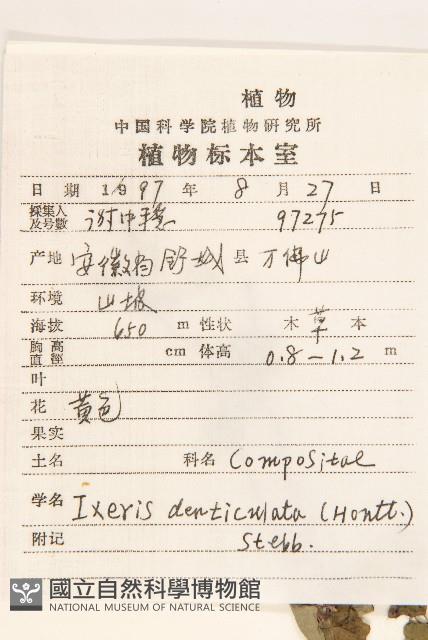 植物
中国科学院植物研究所
植物标本室
日 期 1997 年 8 月 27 日
採集人及号數 谢中稳 97275
产地 安徽省舒城县 万佛山
环境 山坡
海拔 650 m 性状 木 草 本
胸高直徑 cm 体高 0.8—1.2 m
叶
花 黄色
果实
土名 科名 Compositae
学名 Ixeris denticulata (Houtt.)
附记 Stebb.
國立自然科學博物館
NATIONAL MUSEUM OF NATURAL SCIENCE